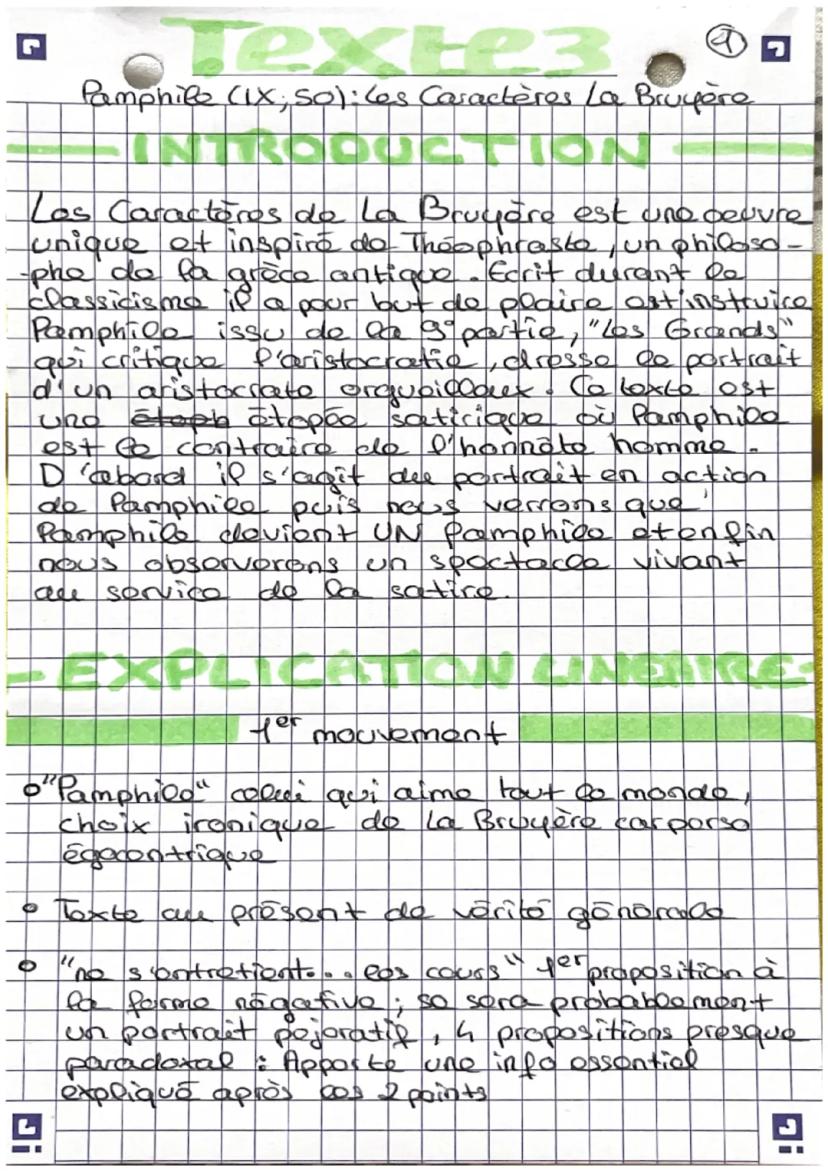 Texte3
1
Pamphile (IX, 50): Les Caractères La Bruyère
INTRODUCTION
Les Caractères de La Bruyère est une oeuvre
unique et inspiré de Théophraste, un philoso-
-phe de la grèce antique. Ecrit durant le
classicisme il a pour but de plaire est instruire
Pamphile issu de la 9e partie, "Les Grands"
qui critique l'aristocratie, dresse le portrait
d'un aristocrate orgueilleux. Ce texte est
une étoph étopée satirique où Pamphile
est le contraire de l'honnête homme.
D'abord il s'agit du portrait en action
de Pamphile puis nous verrons que
Pamphile devient UN Pamphile et enfin
nous observerons un spectacle vivant
au service de la satire.
EXPLICATION LINEAIRE
1er mouvement
"Pamphile" celui qui aime tout le monde,
choix ironique de La Bruyère car perso
égocentrique
Texte au présent de vérité générale
"ne s'entretient... les cours" 1er proposition à
la forme négative; se sera probablement
un portrait pejoratif, 4 propositions presque
paradoxal : Apporte une info essentiel
expliqué après les 2 points